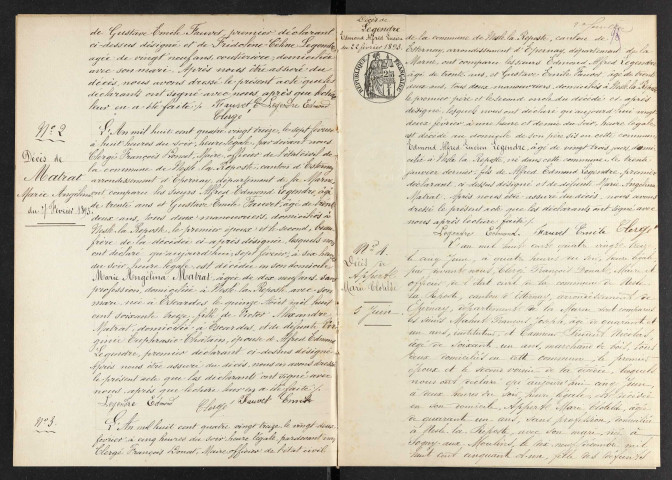 de Gustave Emile Fauvet, premier déclarant
ci-dessus désigné et de Fridoline Céline Legendre
âgée de vingt neuf ans, couturière, domiciliée
avec son mari. Après nous être assuré du
décès, nous avons dressé le présent acte que les
déclarants ont signé avec nous après que lecture
leur en a été faite /. Fauvet E Legendre Edmond
Clergé
N° 2
Décès de
Matrat
Marie Angelina
du 7 Février 1893.
L'An mil huit cent quatre vingt treize, le sept février
à huit heures du soir, heure légale, par devant nous
Clergé François Donat, Maire, officier de l'état civil de
la commune de Nesle la Reposte, canton d'Esternay
arrondissement d'Epernay, département de la Marne,
ont comparu les sieurs Alfred Edmond Legendre, âgé
de trente ans et Gustave Emile Fauvet, âgé de trente
deux ans, tous deux manouvriers, domiciliés à
Nesle la Reposte, le premier époux et le second, beau
frère de la décédée ci-après désignée, lesquels nous
ont déclaré qu'aujourd'hui, sept février, à six heures
du soir, heure légale, est décédée en son domicile
Marie Angelina Matrat, âgée de dix neuf ans, sans
profession, domiciliée à Nesle la Reposte avec son
mari, née à Escardes le quinze Août mil huit
cent soixante treize, fille de Alexandre
Matrat, domicilié à Escardes, et de défunte
Euphrasie épouse de Alfred Edmond
Legendre, premier déclarant ci-dessus désigné.
Après nous être assuré du décès, nous avons dressé
le présent acte que les déclarants ont signé avec
nous, après que lecture leur en a été faite /.
Legendre Edmond Clergé Fauvet Emile
N° 3.
L'An mil huit cent quatre vingt treize, le vingt deux
février à cinq heures du soir, heure légale, par devant nous
Clergé François Donat, Maire officier de l'état civil
Décès de
Legendre
Edmond Alfred Lucien
du 22 février 1893.
RÉPUBLIQUE FRANÇAISE
de la commune de Nesle la Reposte, canton de
Esternay, arrondissement d'Epernay, département de la
Marne, ont comparu les sieurs Edmond Alfred Legendre
âgé de trente ans, et Gustave Emile Fauvet, âgé de trente
deux ans, tous deux manouvriers, domiciliés à Nesle la Reposte
le premier père et le second oncle du décédé ci-après
désigné, lesquels nous ont déclaré qu'aujourd'hui vingt
deux février à une heure et demie du soir, heure légale
est décédé au domicile de son père sis en cette commune
Edmond Alfred Lucien Legendre, âgé de vingt trois jours, domi
cilié à Nesle la Reposte, né dans cette commune, le trente
janvier dernier, fils de Alfred Edmond Legendre, premier
déclarant ci-dessus désigné et de défunte Marie Angelina
Matrat. Après nous être assuré du décès, nous avons
dressé le présent acte que les déclarants ont signé avec
nous après lecture faite /.
Legendre Edmond Fauvet Emile Clergé
N° 4.
Décès de
Appert
Marie Clotilde
5 Juin
L'an mil huit cent quatre vingt treize
le cinq juin, à quatre heures du soir, heure légale,
par devant nous, Clergé François Donat, Maire et
officier de l'état civil de la commune de Nesle
la Reposte, canton d'Esternay, arrondissement de
Epernay, département de la Marne, sont comparus
les sieurs François Joseph, âgé de quarante et
un ans, instituteur, et Edmond Nicolas
âgé de soixante un ans, marchand de tous
deux domiciliés en cette commune, le premier
époux et le second voisin de la décédée, lesquels
nous ont déclaré que aujourd'hui cinq juin
à deux heures du soir, heure légale, est décédée
en son domicile, Appert Marie Clotilde, âgée
de quarante un ans, sans profession, domiciliée
à Nesle la Reposte, avec son mari, née à
Sogny aux Moulins, le mil
huit cent cinquante deux, fille des défunts